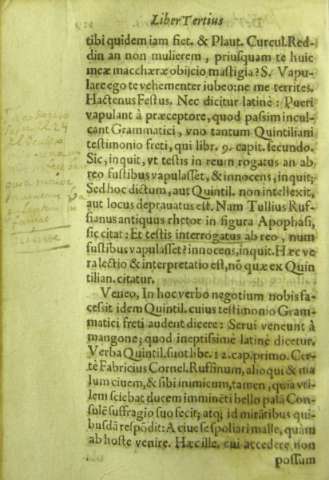 Liber Tertius
tibi quidem iam fiet. & Plaut. Curcul. Red-
din an non mulierem, priusquam te huic
meæ macchæræ obijcio mastigia? S. Vapu-
lare ego te vehementer iubeo: ne me territes.
Hactenus Festus. Nec dicitur latinè: Pueri
vapulant à præceptore, quod passim incul-
cant Grammatici, vno tantum Quintiliani
testimonio freti, qui libr. 9. capit. secundo.
Sic, inquit, vt testis in reum rogatus an ab
reo fustibus vapulasset, & innocens, inquit;
Sed hoc dictum, aut Quintil. non intellexit,
aut locus deprauatus est. Nam Tullius Ruf-
fianus antiquus rhetor in figura Apophasi,
sic citat: Et testis interrogatus ab reo, num
fustibus vapulasset? innocens, inquit. Hæc ve
ra lectio & interpretatio est, nõ quæ ex Quin
tilian. citatur.
Veneo, In hoc verbo negotium nobis fa-
cessit idem Quintil. cuius testimonio Gram-
matici freti audent dicere: Serui veneunt à
mangone; quod ineptissimè latinè dicetur.
Verba Quintil. sunt libr. 12. cap. primo. Cer-
tè Fabricius Cornel. Ruffinum, alioqui & ma
lum ciuem, & sibi inimicum, tamen, quia vti-
lem sciebat ducem imminēti bello palā Con-
sulē suffragio suo fecit; atq; id mirātibus qui-
busdā respōdit: A ciue se spoliari malle, quàm
ab hoste venire. Hæc ille. cui accedere non
possum